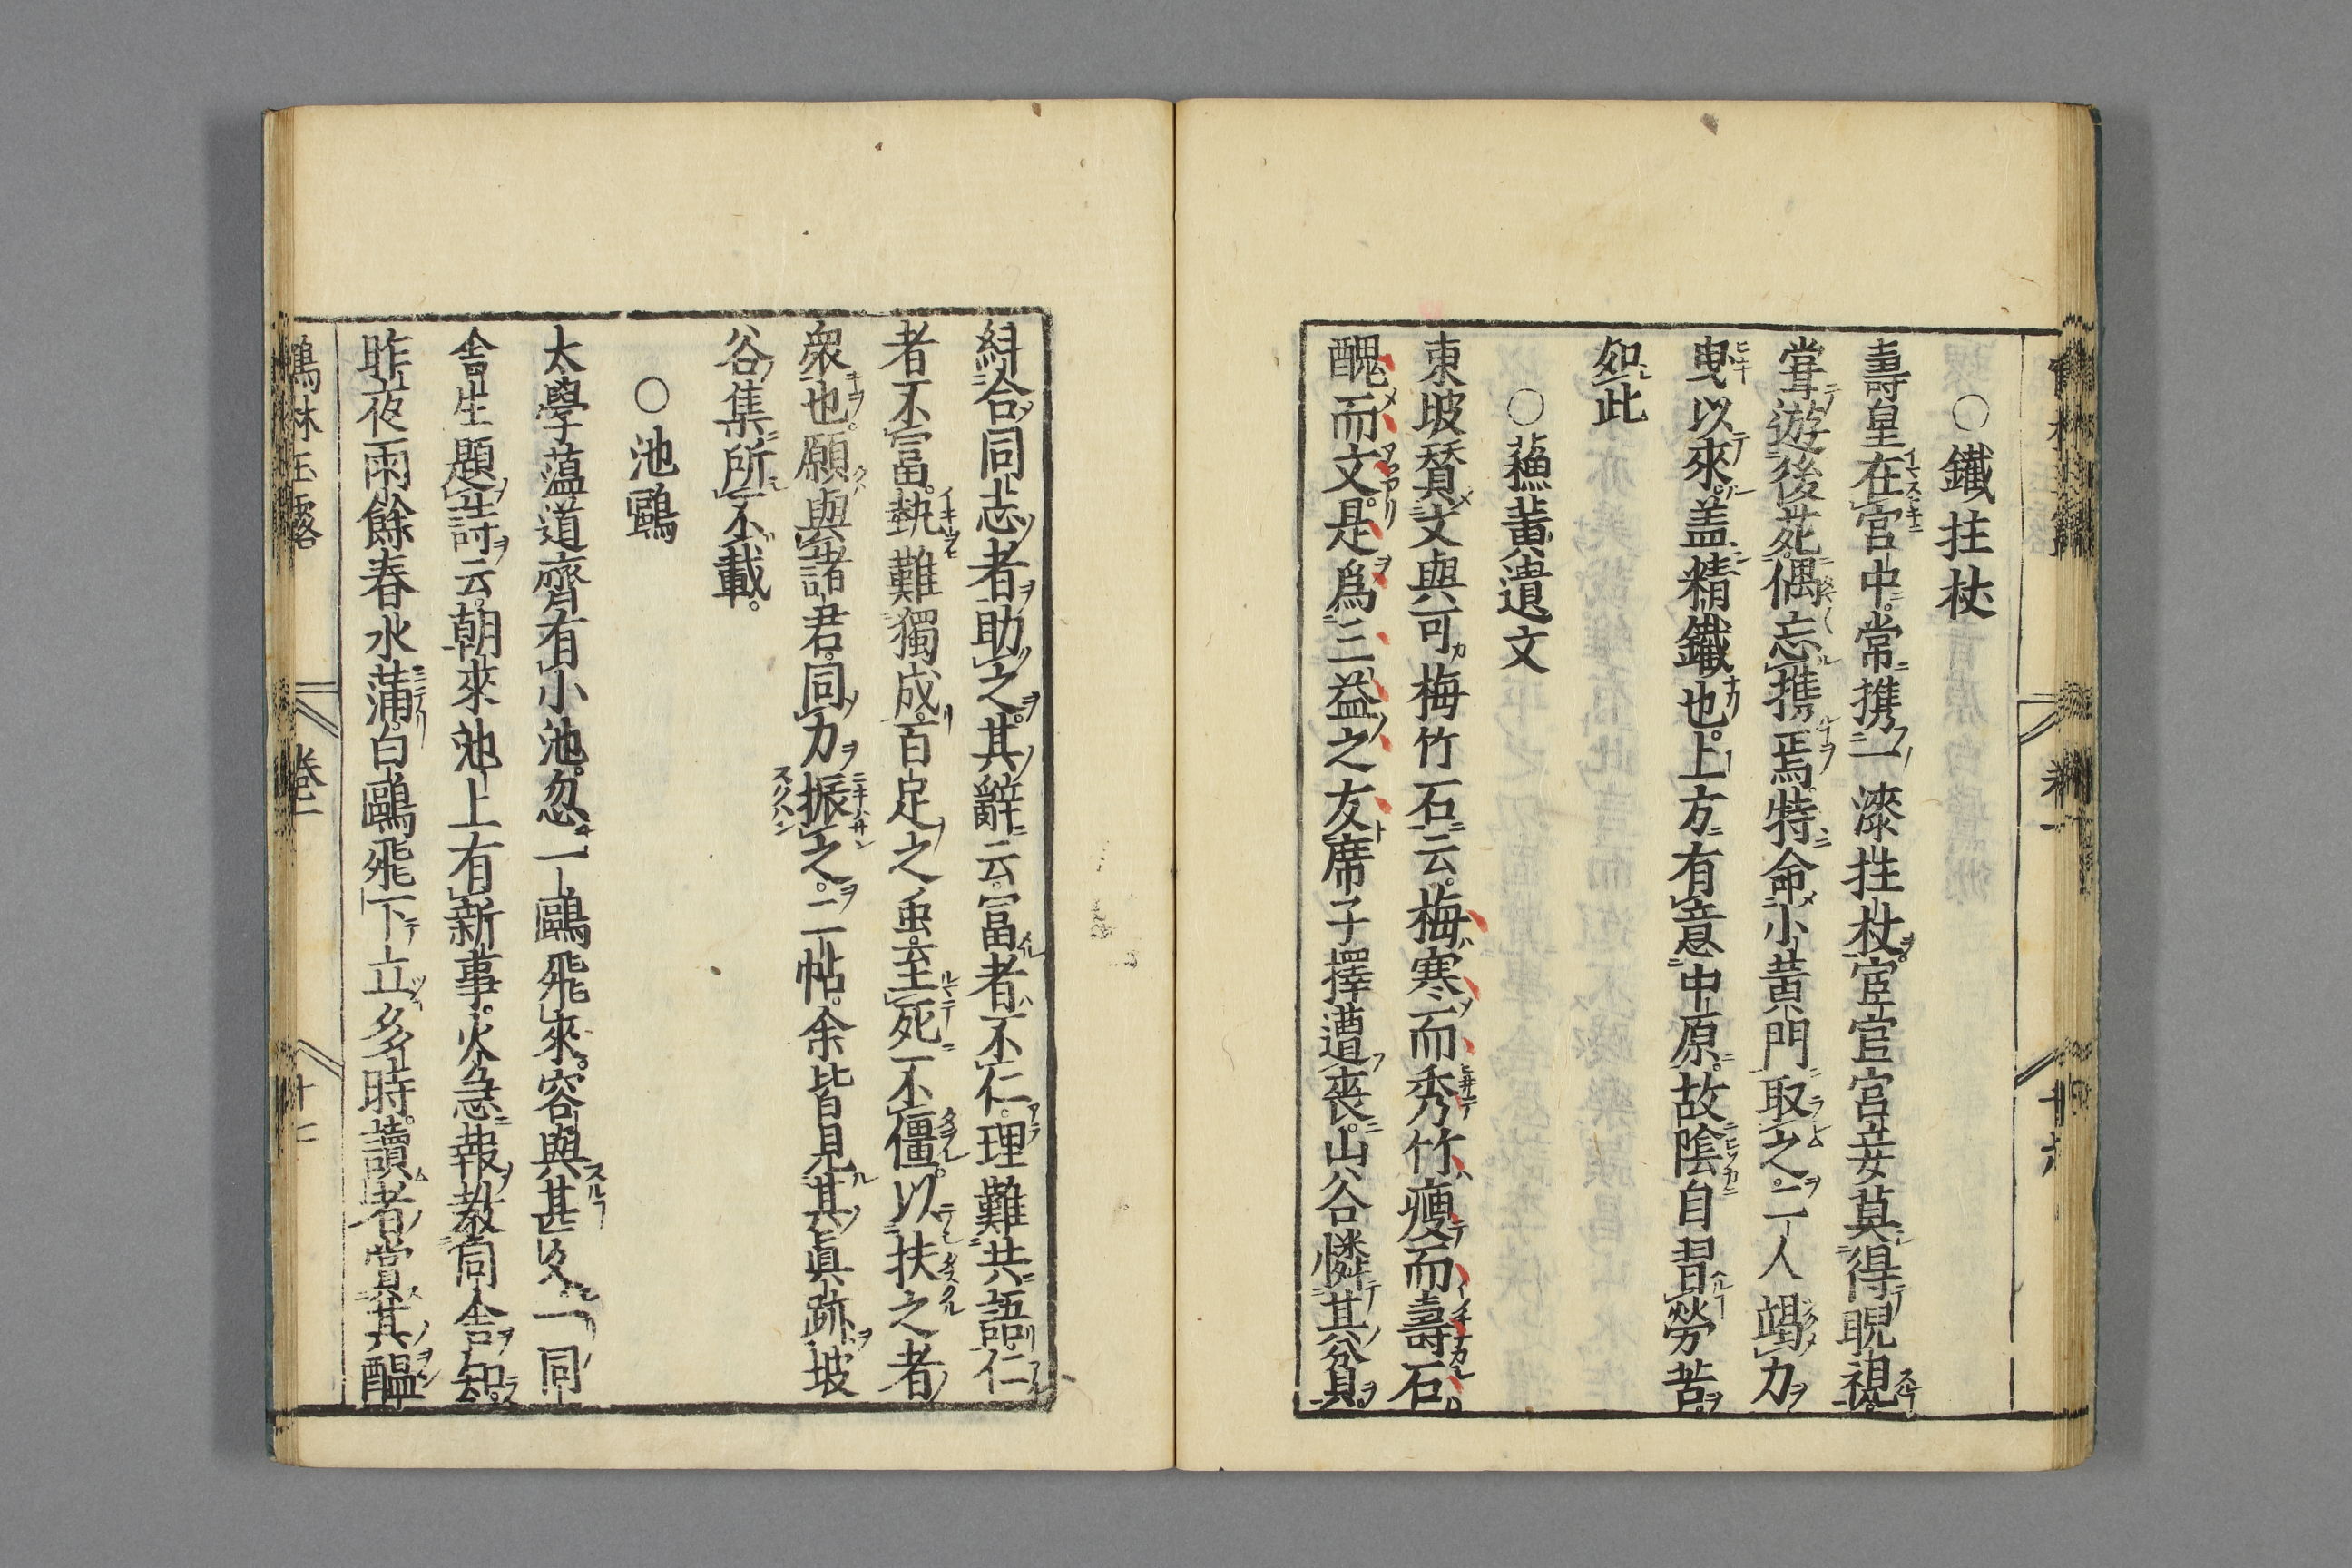 ○鐵拄杖
壽皇在宮中常攜一漆拄杖宦官宮妾莫得睨視
嘗遊後苑偶忘攜焉特命小黃門取之二人竭力
曳以來蓋精鐵也上方有意中原故陰自習勞苦
如此
○蘇黃遺文
東坡贊文與可梅竹石云梅寒而秀竹瘦而壽石
醜而文是爲三益之友席子擇遭喪山谷憐其貧
糾合同志者助之其辭云富者不仁理難共語仁
者不富執難獨成百足之虫至死不僵以扶之者
衆也願與諸君同力振之二帖余皆見其眞跡坡
谷集所不載
○池鷗
太學蘊道齋有小池忽一鷗飛來容與甚久一同
舍生題詩云朝來池上有新事火急報教同舍知
昨夜雨餘春水滿白鷗飛下立多時讀者賞其醞
鶴林玉露
卷一